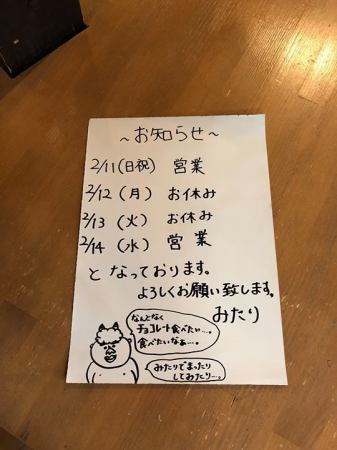 ～お知らせ～
2/11(日祝) 営業
2/12 (月) お休み
2/13 (火) お休み
2/14 (水) 営業
となっております。
よろしくお願い致します。
みたり
なんとなく
チョコレート食べたい…。
食べたいなぁ…。
みたりでまったり
してみたり…。